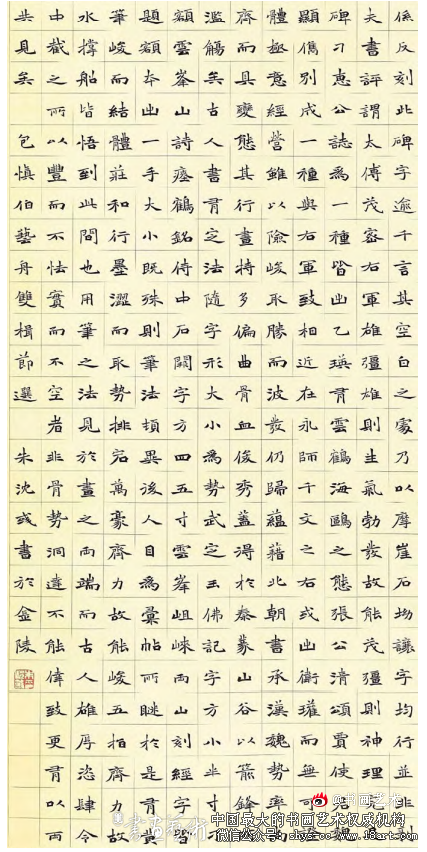 係反刻此碑字逾千言其空白之處乃以摩崖石均讓字均行並非
夫書評謂太傅茂密右軍雄彊雄則生氣勃發故能茂彊則神
碑刁惠公誌爲一種皆出乙瑛有雲鶴海鷗之態張公清頌賈使
顯儁別成一種與右軍致相近在永師千文之右或出衛瓘而無
體極意經營雖以險峻取勝而波發仍歸蘊藉北朝書承漢魏勢率
齊而具變態其行畫特多偏曲骨血俊秀蓋得於秦篆山谷以箭鋒
濫觴矣古人書有定法隨字形大小爲勢武定玉佛記字方小半寸
額雲峯山詩瘞鶴銘侍中石闕字方四五寸雲峯岨崍兩山刻經字皆
題額本出一手大小既殊則筆法頓異後人自爲彙帖所眯於是有黃
筆峻而結體莊和行墨澀而取勢排宕萬豪齊力故能峻五指齊力故
水撐船皆悟到此間也用筆之法見於畫之兩端而古人雄厚恣肆令
中截之所以豐而不怯實而不空者非骨勢洞達不能偉致更有以兩
共見矣 包慎伯藝舟雙楫節選 朱沈或書於金陵
@书画艺术
中国最大的书画艺术权威机构